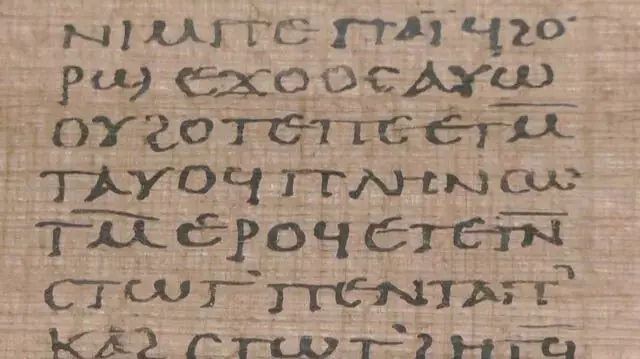 ⲛⲓⲙ ⲡⲉ ⲡⲁⲓ̈ ϥϩⲟ
ⲣϣ ⲉϫⲟⲟⲥ ⲁⲩⲱ
ⲟⲩϩⲟⲧⲉ ⲡⲉ ⲉⲧⲙ̄
ⲧⲁⲩⲟϥ ⲡⲗⲏⲛ ⲥⲱ
ⲧⲙ̄ ⲉⲣⲟϥ ⲉⲧⲉⲧⲛ̄
ⲥⲧⲱⲧ ⲡⲉⲛⲧⲁⲡ
ⲕⲁϩ ⲥⲧⲱⲧ